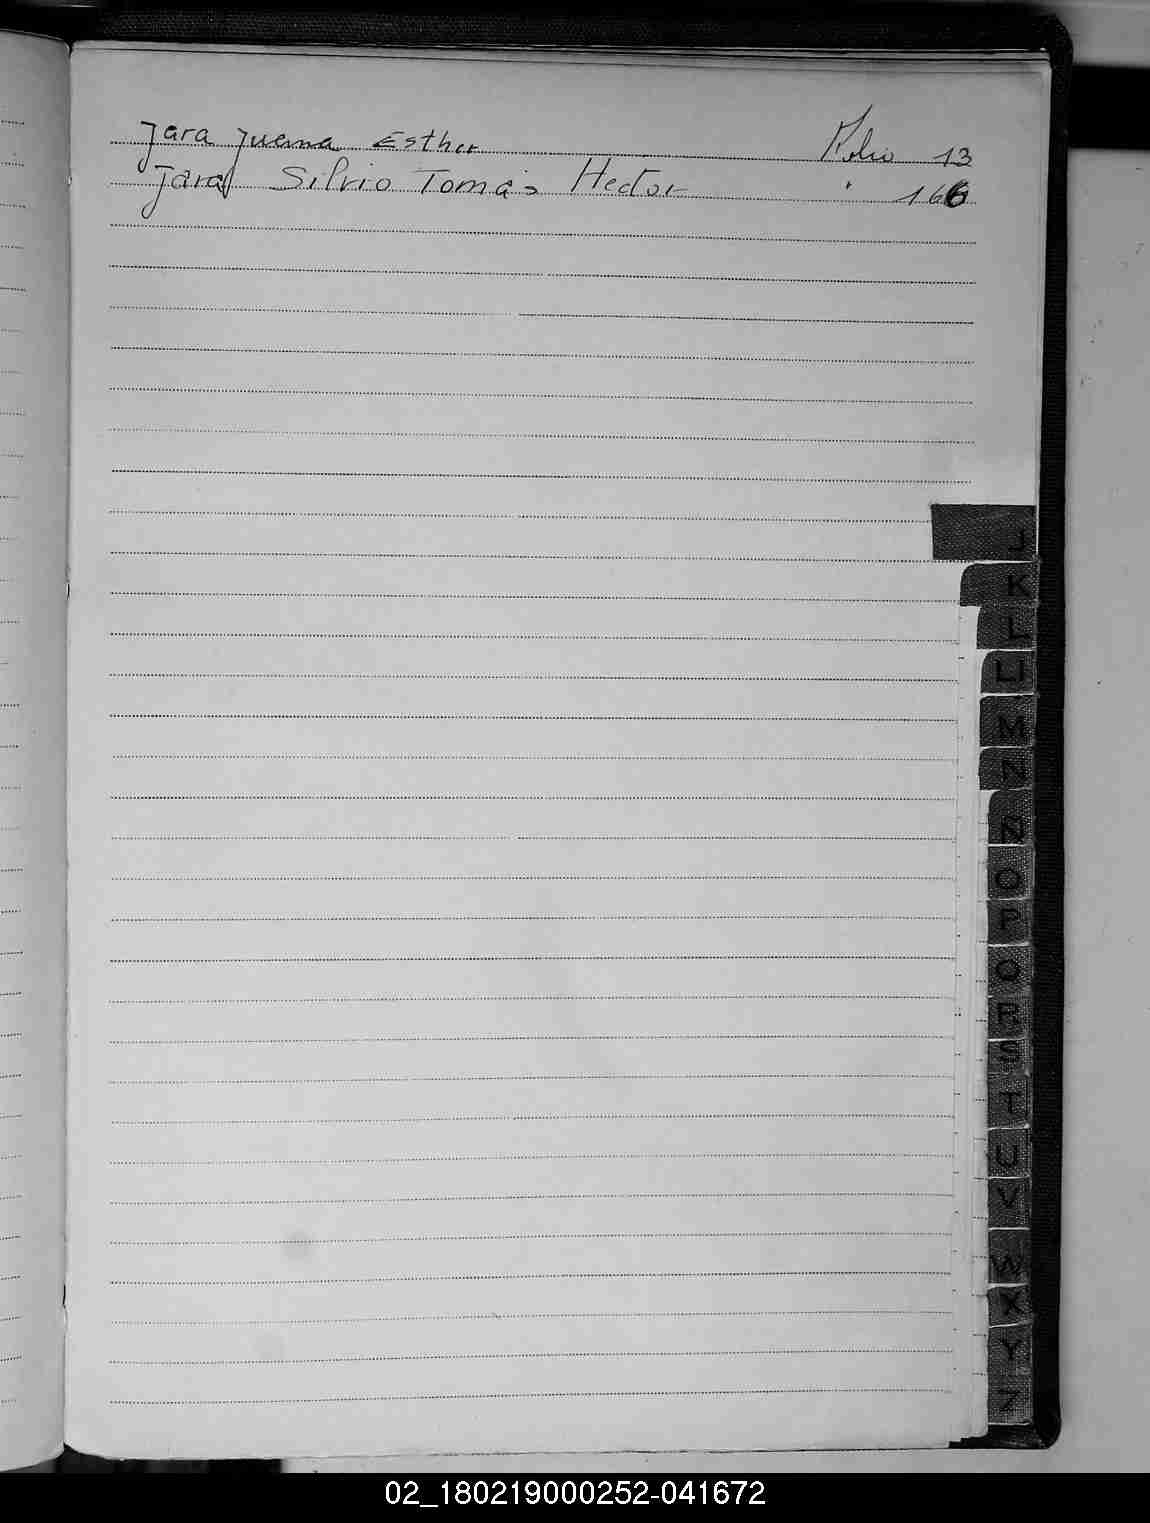 Jara Juema Esther Folio 13
Jara Silvio Tomás Hector " 166
J
K
L
Ll
M
N
Ñ
O
P
Q
R
S
T
U
V
W
X
Y
Z
02_180219000252-041672